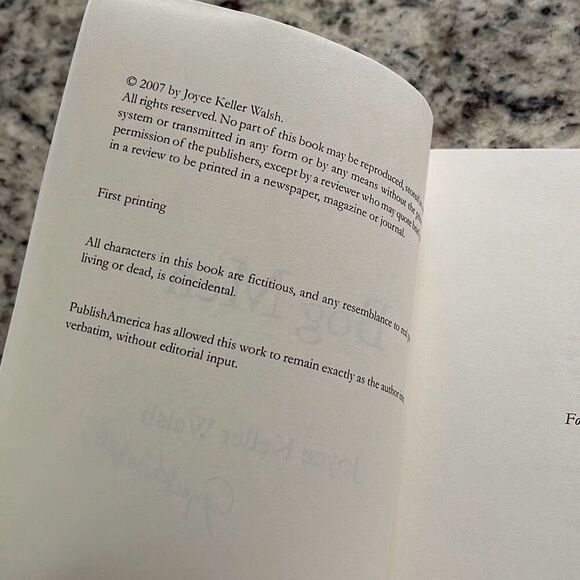 © 2007 by Joyce Keller Walsh.
All rights reserved. No part of this book may be reproduced, stored in a
system or transmitted in any form or by any means without the
permission of the publishers, except by a reviewer who may quote brief
in a review to be printed in a newspaper, magazine or journal.
First printing
All characters in this book are fictitious, and any resemblance to real
living or dead, is coincidental.
PublishAmerica has allowed this work to remain exactly as the author
verbatim, without editorial input.
Joyce Keller Walsh